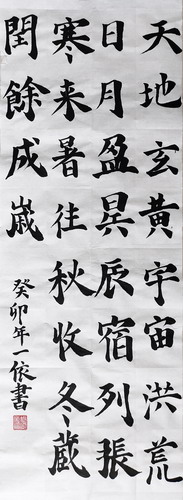 天地玄黃宇宙洪荒
日月盈昃辰宿列張
寒来暑往秋收冬藏
閏餘成嵗
癸卯年一依書